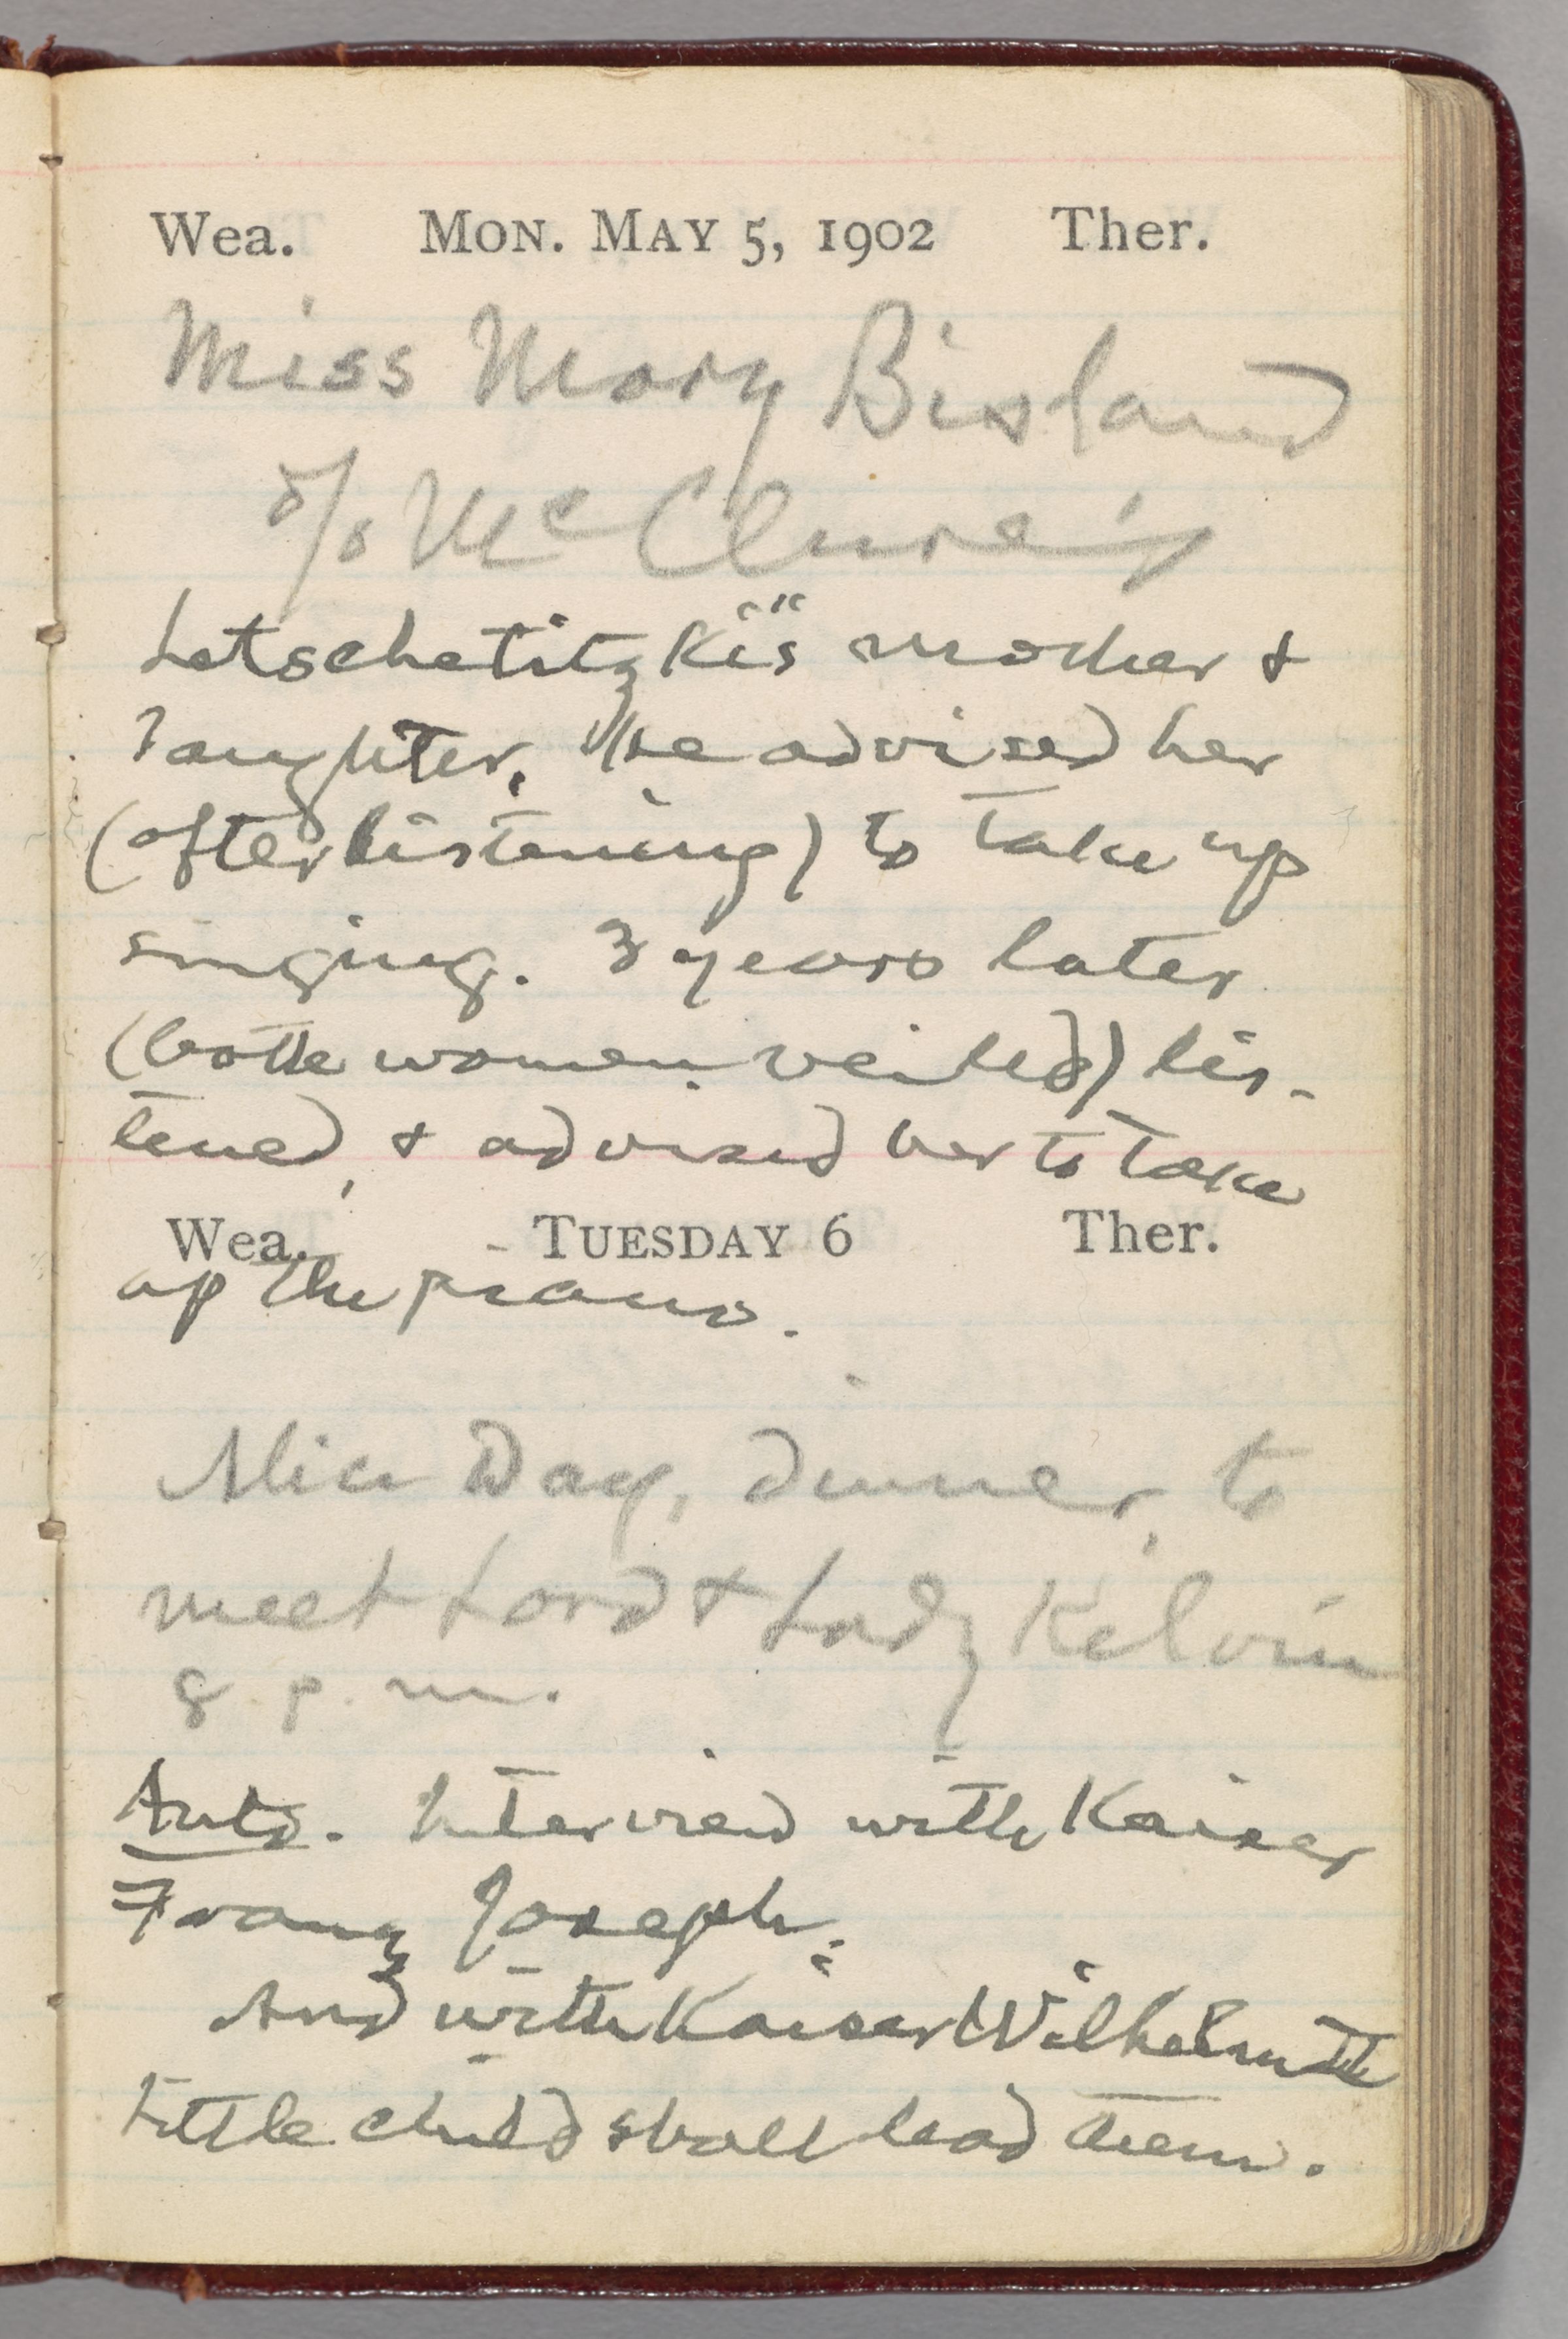 Wea. MON. MAY 5, 1902 Ther.
Miss Mary Bisland
c/o McClure's
Letschetitzki's mother &
daughter. He advised her
(after listening) to take up
singing. 3 years later
(both women veiled) lis-
tened, & advised her to take
Wea. TUESDAY 6 Ther.
up the piano.
Alice Day, dinner, to
meet Lord & Lady Kelvin
8 p.m.
Auto. Interview with Kaiser
Franz Joseph.
And with Kaiser Wilhelm II
Little child shall lead them.